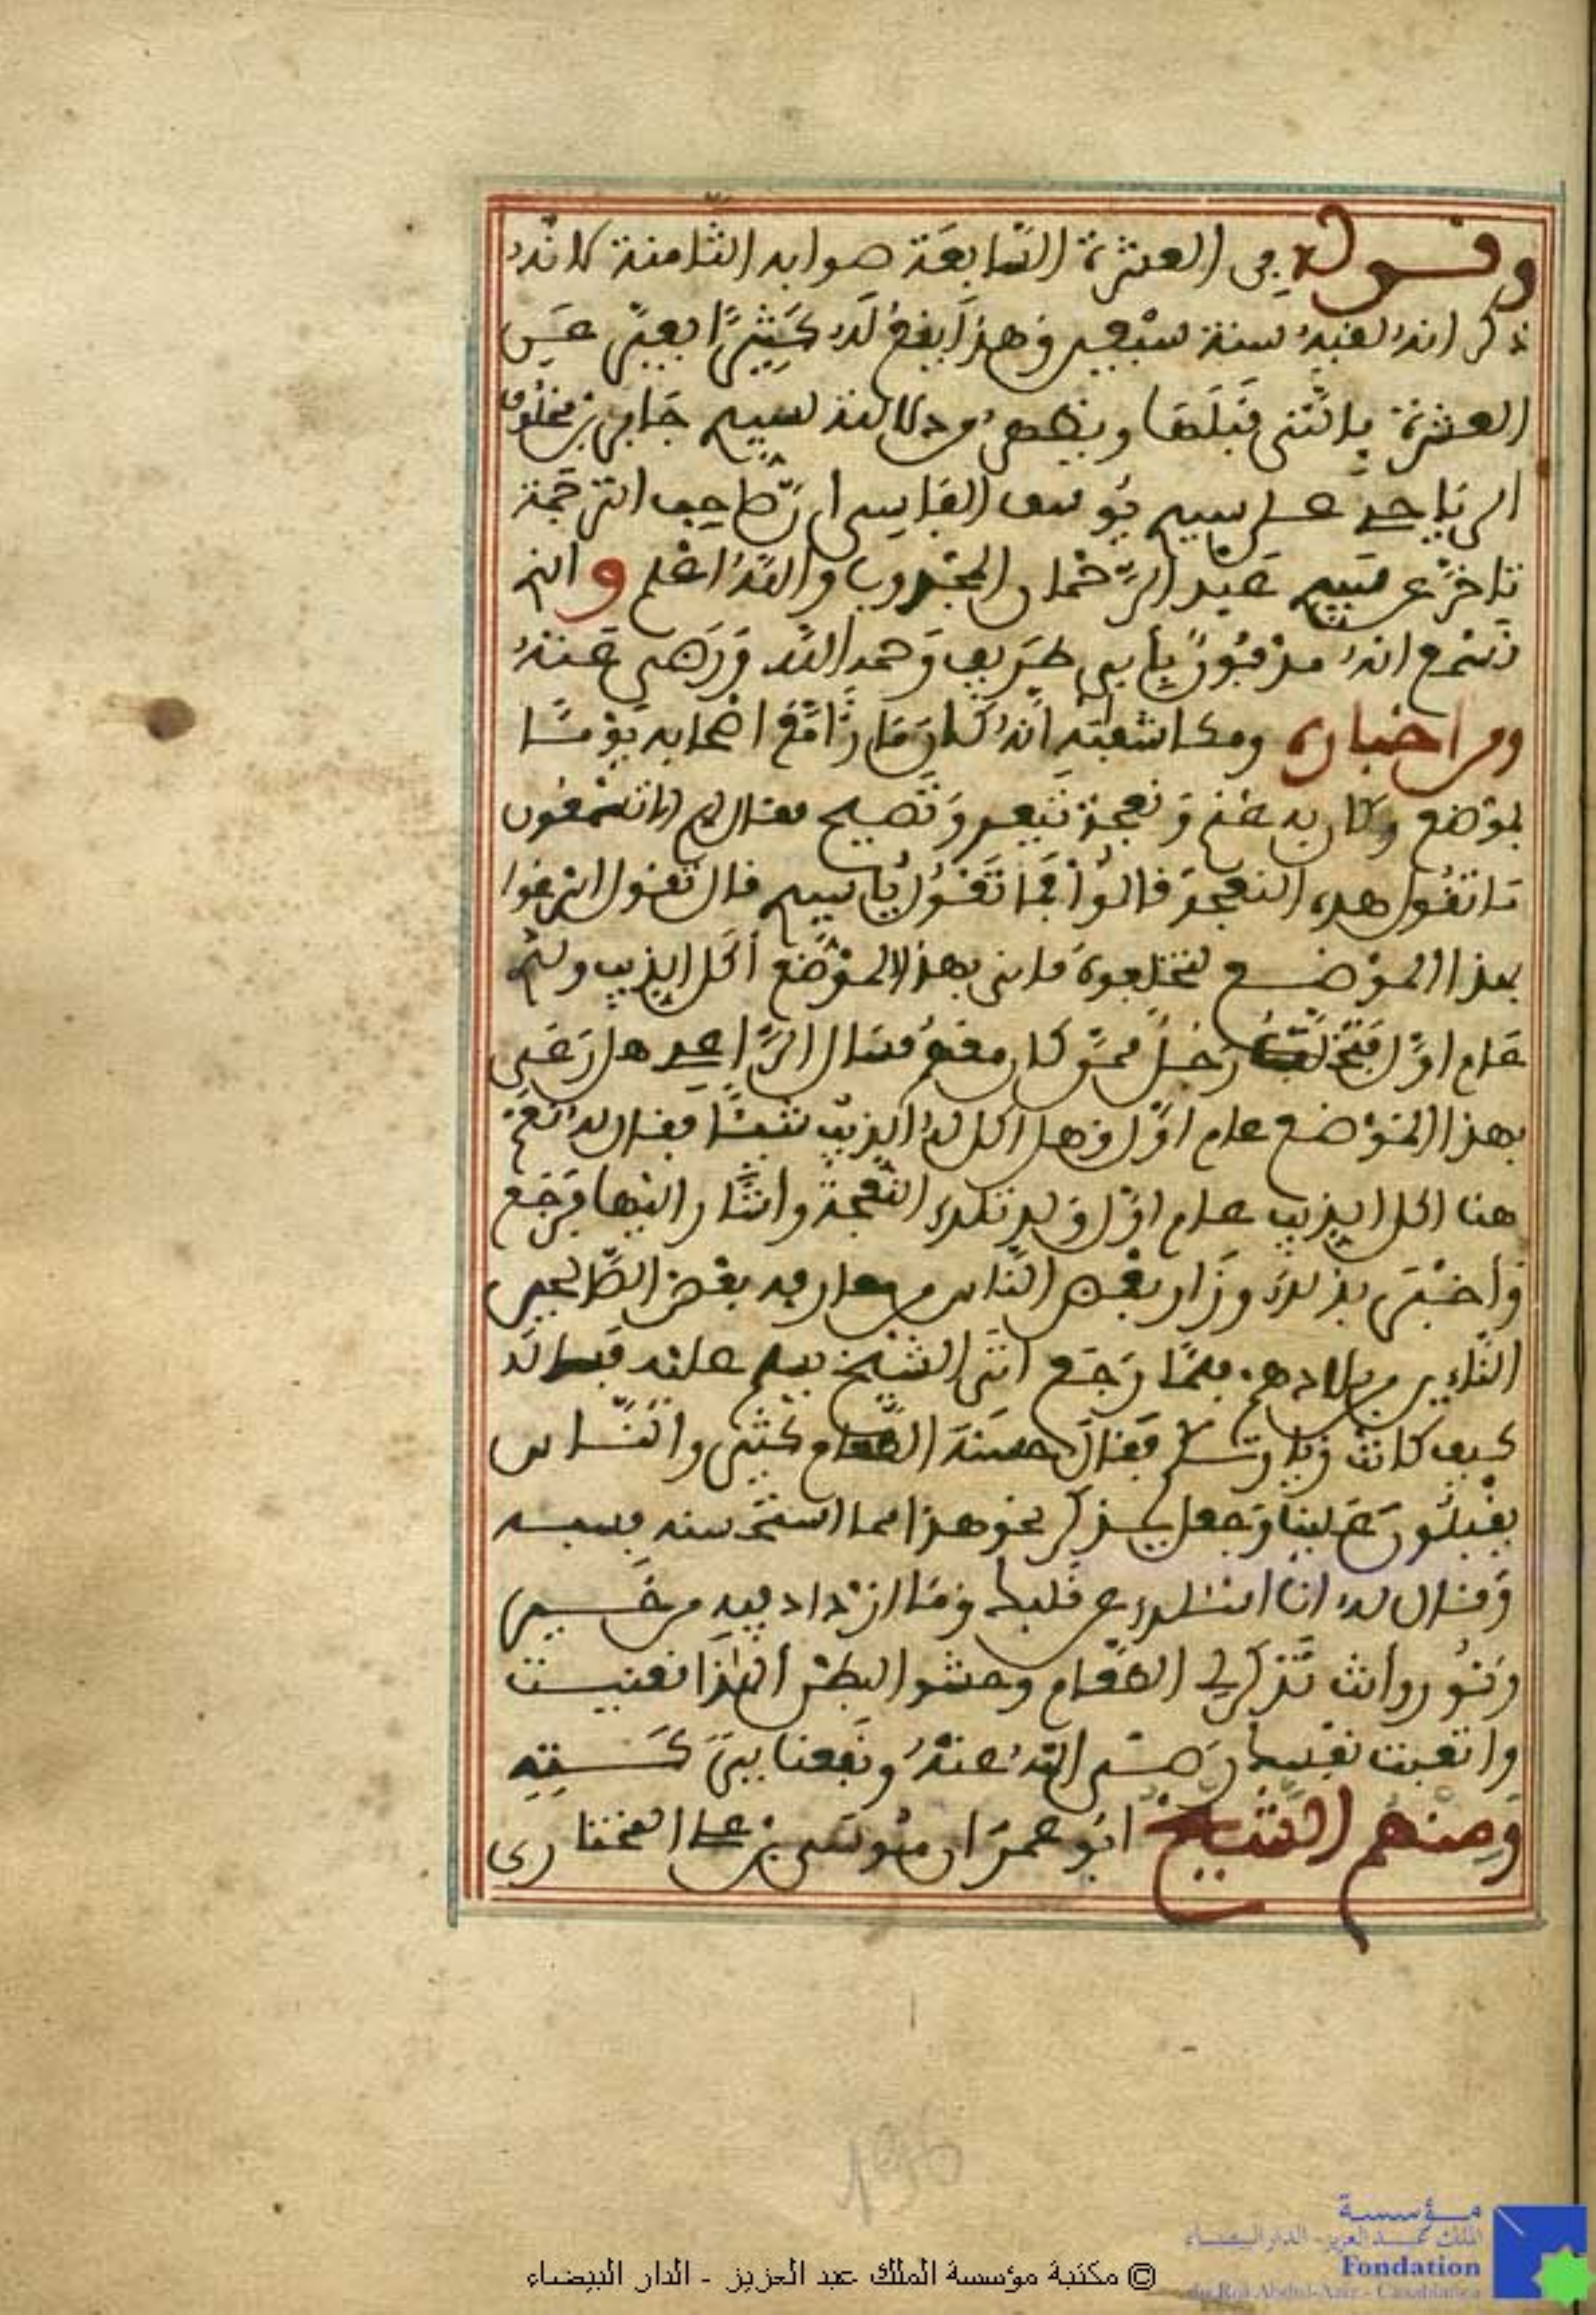 وقوله في العشرة السابعة صوابه الثامنة لانه
ذكر انه لقيه سنة سبعين وهذا يقع له كثيرا يعبر عن
العشرة بالتي قبلها ويظهر من دلالته لسيدي جابر بن مخلوف
الرياحي على سيدي يوسف الفاسي ان صاحب الترجمة
تاخر عن سيدي عبد الرحمان المجذوب والله اعلم والذي
نسمع انه مدفون بابي طريف رحمه الله ورضي عنه
ومن اخباره ومكاشفته انه كان مارا مع اصحابه يوما
بموضع وكان به غنم ونعجة تيعر وتصيح فقال لهم الا تسمعون
ما تقول هذه النعجة قالوا فما تقول يا سيدي قال تقول ارعوا
بهذا الموضع فانى بهذا الموضع اكل الذيب ولدي
عام اول فتخلف رجل ممن كان معه فسال الراعي هل رعى
بهذا الموضع عام اول وهل اكل له الذيب شيئا فقال له نعم
هنا اكل الذيب عام اول ولد تلك النعجة واشار اليها فرجع
واخبر بذلك وزار بعض الناس من معارفه بعض الصالحين
من بلادهم فلما رجع اتى الشيخ يسلم عليه فقال له
كيف كانت زيارتكم فقال حسنة الطعام كثير والناس
يقبلون علينا وجعل يذكر نحو هذا مما استحسنه
وقال له انا اسئلك عن قلبك وما ازداد فيه من خير
ونور وانت تذكر لي الطعام وحشو البطن الهذا تعنيت
واتعبت نفسك رضي الله عنه ونفعنا ببركته
ومنهم الشيخ ابو عمران موسى بن علي
© مكتبة مؤسسة الملك عبد العزيز - الدار البيضاء
مؤسسة
الملك عبد العزيز - الدار البيضاء
Fondation
du Roi Abdul-Aziz - Casablanca